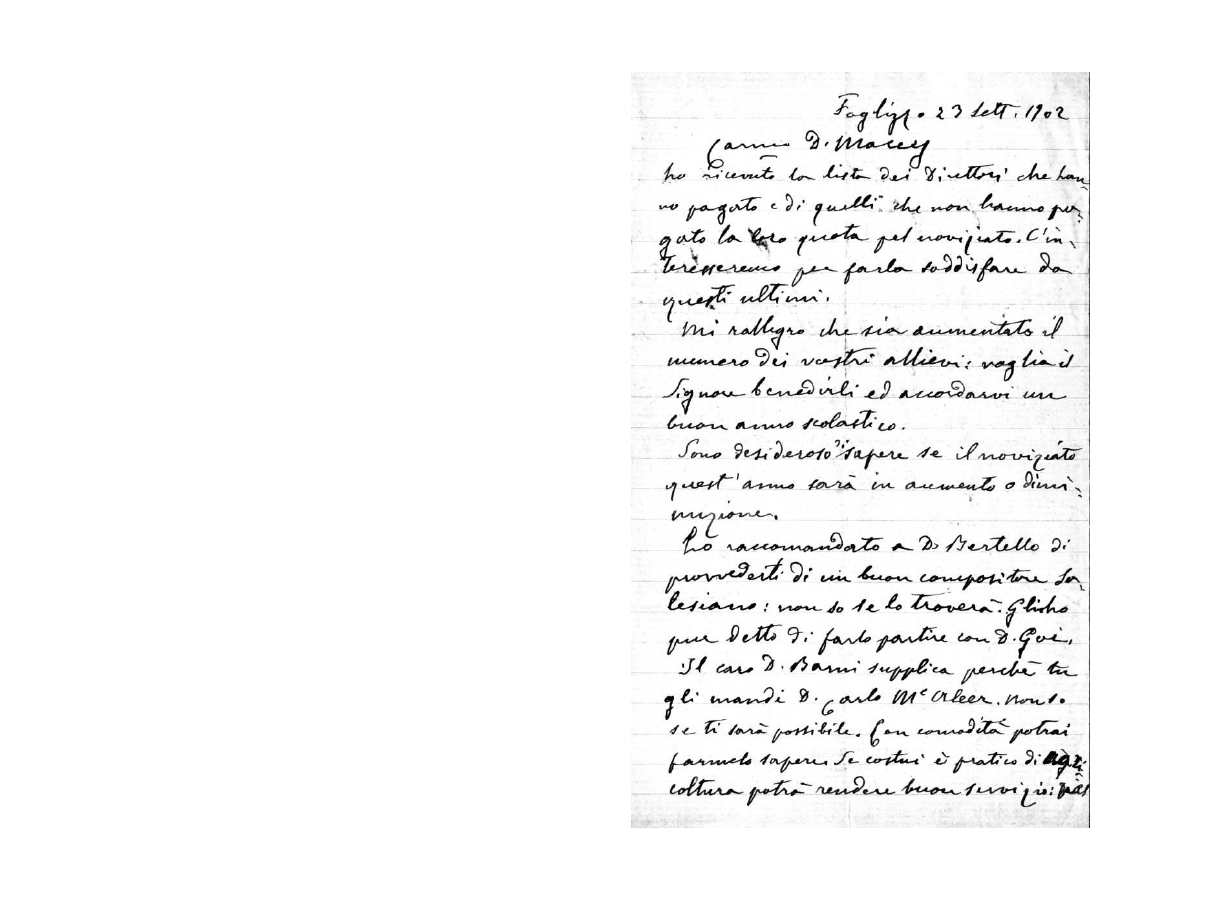 Foglizzo 23 Sett. 1902
Car.mo D. Macey
ho ricevuto la lista dei Direttori che han-
no pagato e di quelli che non hanno pa-
gato la loro quota pel noviziato. C'in-
teresseremo per farla soddisfare da
questi ultimi.
Mi rallegro che sia aumentato il
numero dei vostri allievi: voglia il
Signore benedirli ed accordarvi un
buon anno scolastico.
Sono desideroso di sapere se il noviziato
quest'anno sarà in aumento o dimi-
nuzione.
Ho raccomandato a D. Bertello di
provvederti di un buon compositore Sa-
lesiano: non so se lo troverà. Gli ho
pur detto di farlo partire con D. Goi.
Il caro D. Barni supplica perchè tu
gli mandi D. Carlo Mc Orleer. Non so
se ti sarà possibile. Con comodità potrai
farmelo sapere. Se costui è pratico di agri-
coltura potrà rendere buon servizio: